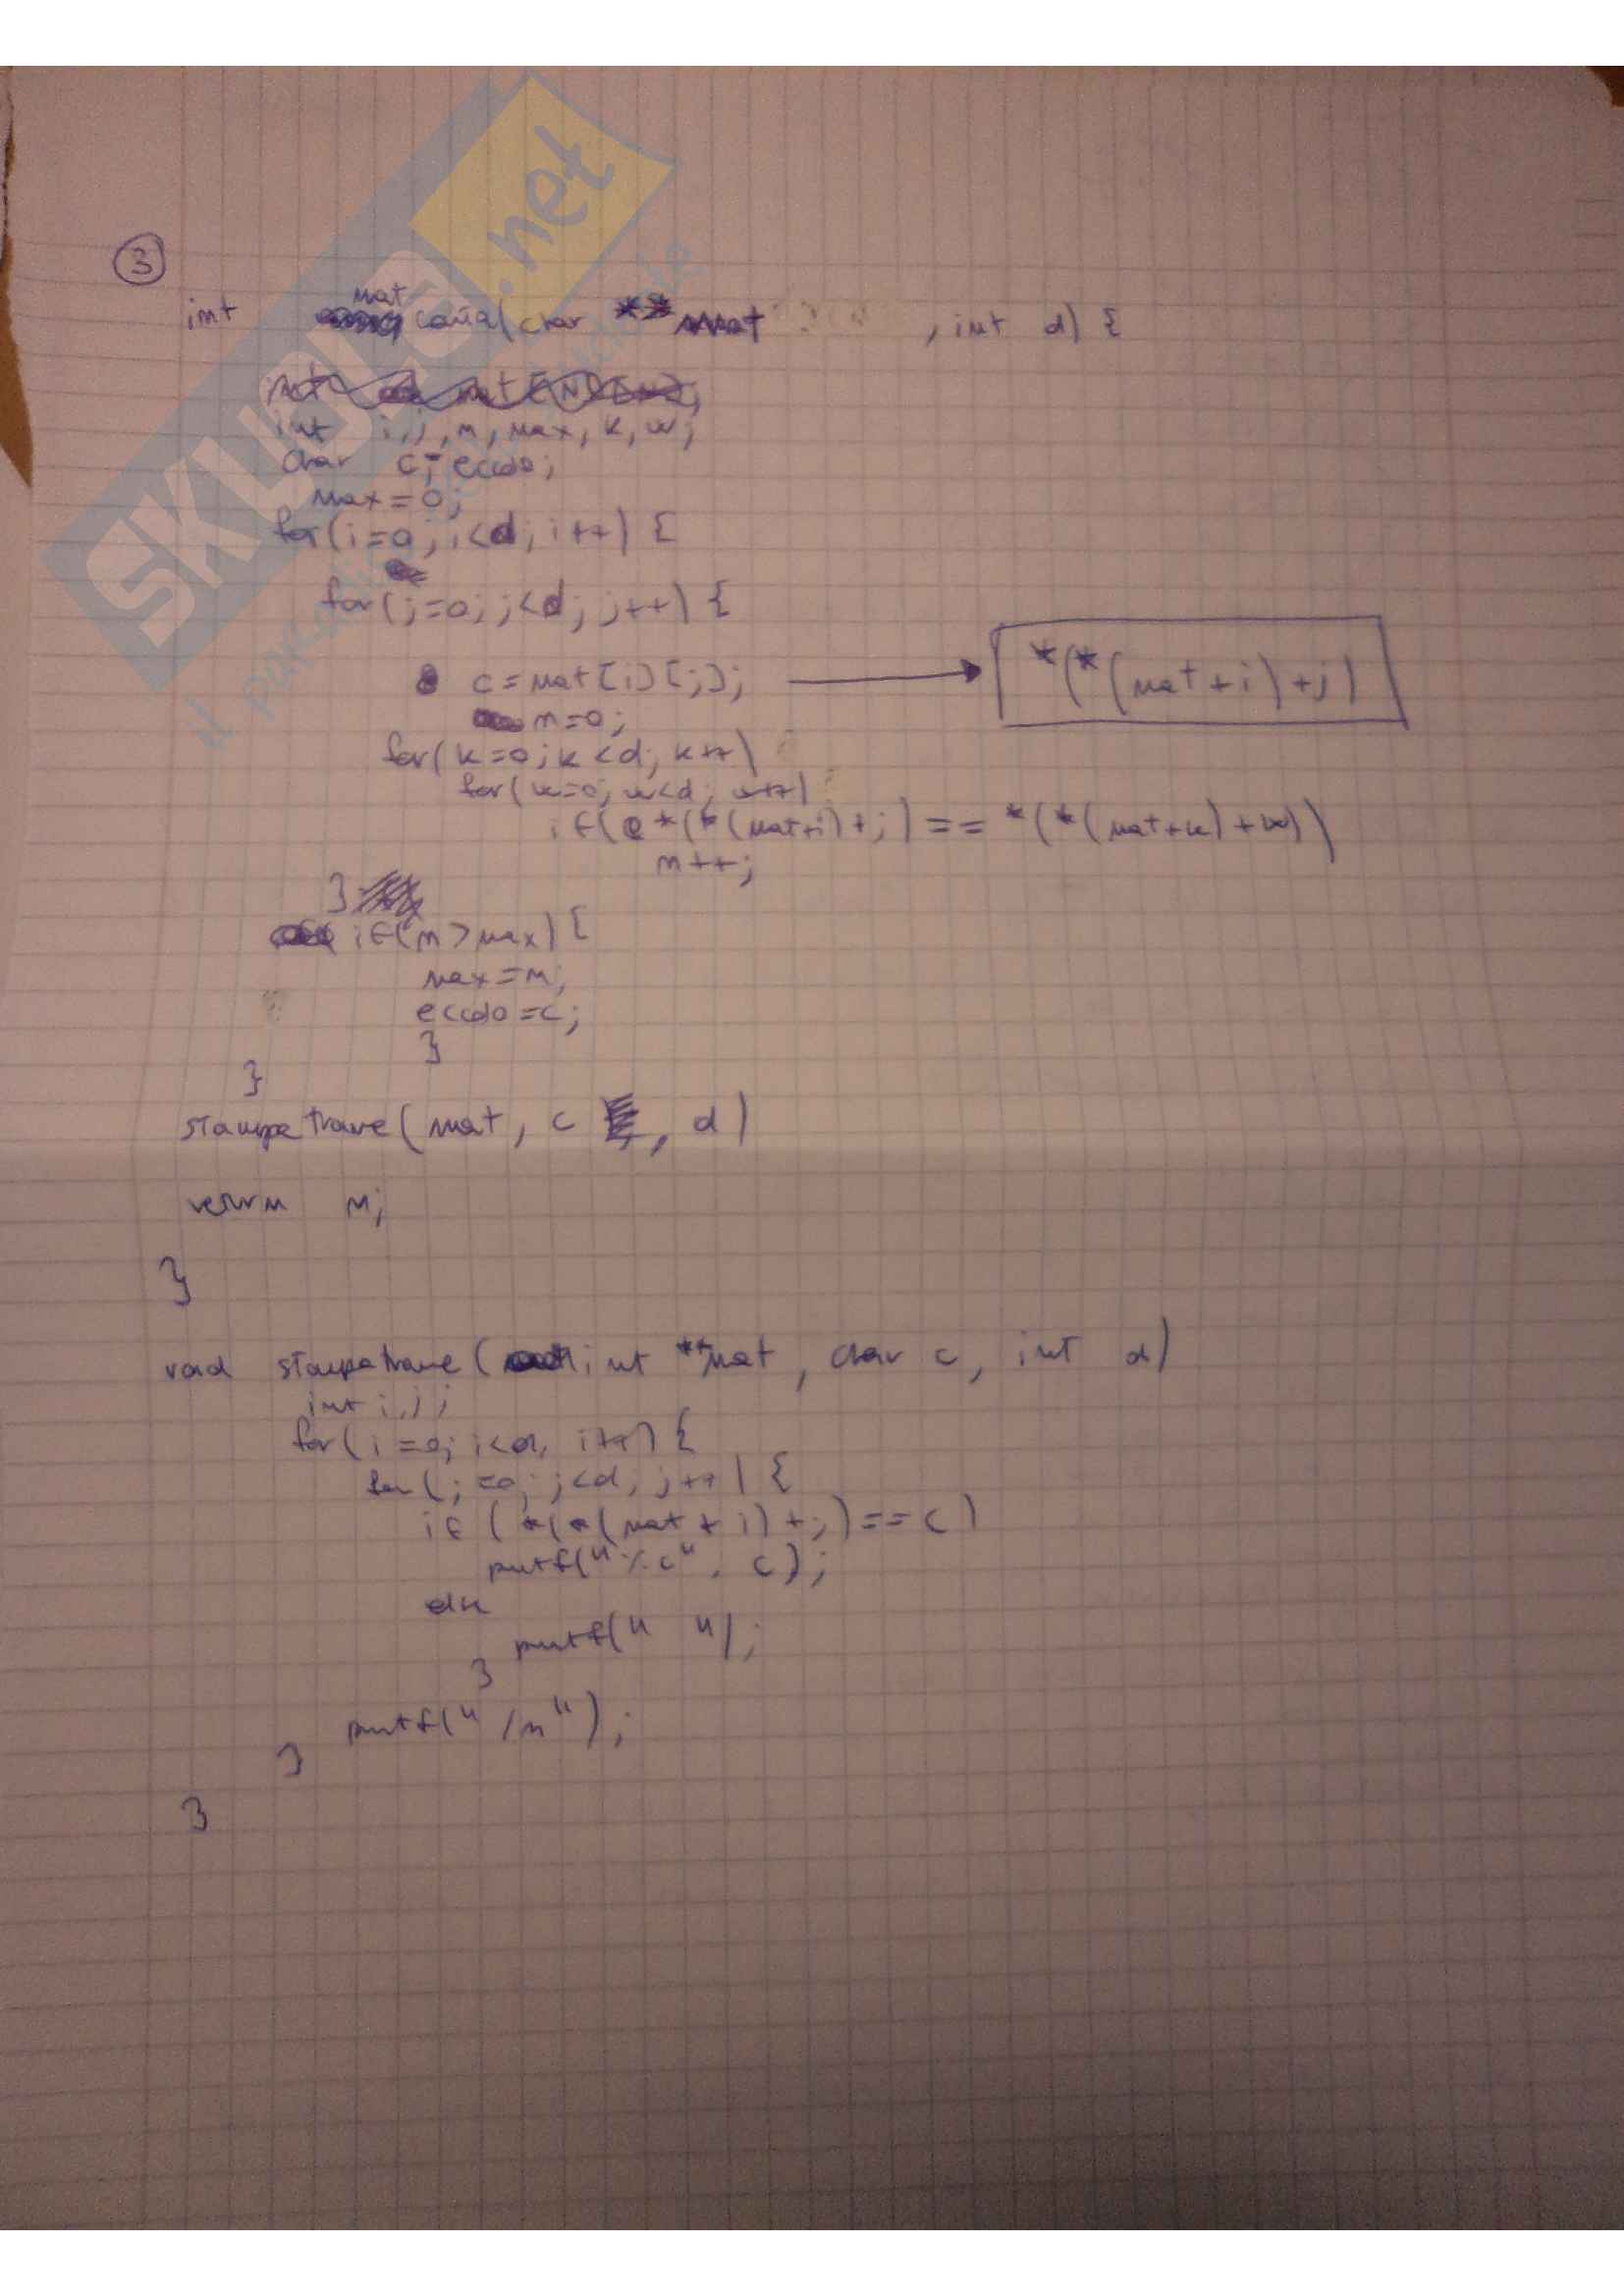 3
mat
int conta(char **mat , int d) {
int i,j,n,max,k,w;
char c; eccolo;
max=0;
for(i=0;i<d;i++) {
for(j=0;j<d;j++) {
c=mat[i][j]; *(*(mat+i)+j)
n=0;
for(k=0;k<d;k++)
for(w=0;w<d;w++)
if(*(*(mat+i)+j)==*(*(mat+k)+w))
n++;
}
if(n>max){
max=n;
eccolo=c;
}
}
stampatrame(mat, c , d)
return n;
}
void stampatrame(int **mat, char c, int d)
int i,j;
for(i=0; i<d, i++) {
for(j=0; j<d; j++) {
if(*(*(mat+i)+j)==c)
printf("%c", c);
else
printf(" ");
}
printf("/n");
}
}
SKUOLA.net